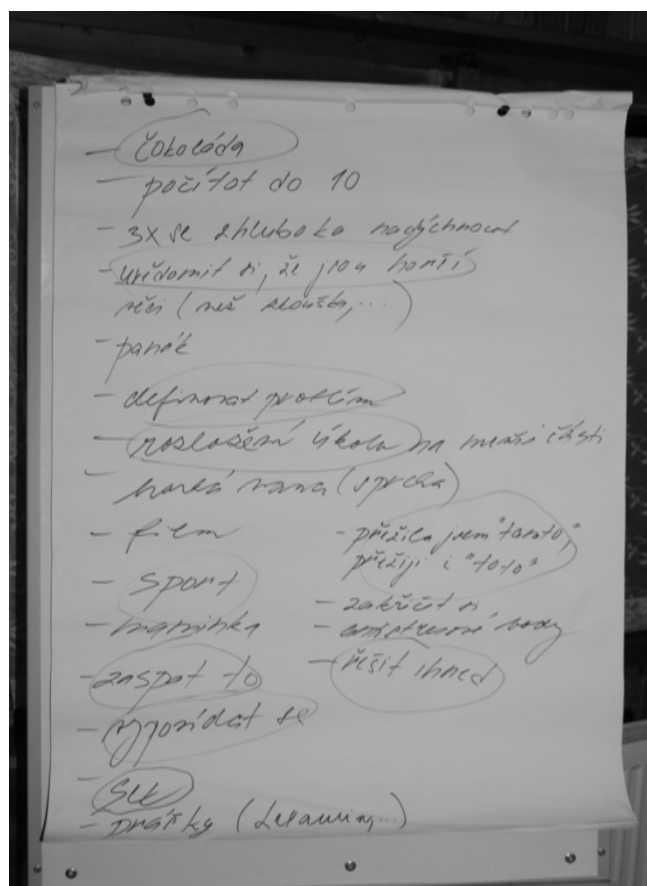 - čokoláda
- počítat do 10
- 3x se zhluboka nadýchnout
- uvědomit si, že jsou horší
věci (než zkouška,...)
- panák
- definovat problém
- rozložení úkolu na menší části
- horká vana (sprcha)
- film
- sport
- maminka
- zaspat to
- vypovídat se
- sex
- prášky (
- přežila jsem "tamto",
přežiji i "toto"
- zakřičet si
- antistresové body
- řešit ihned